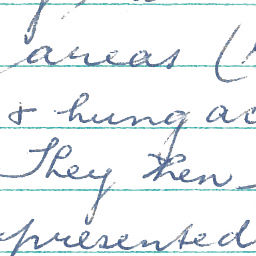 areas (
& hung ac
They then
presented